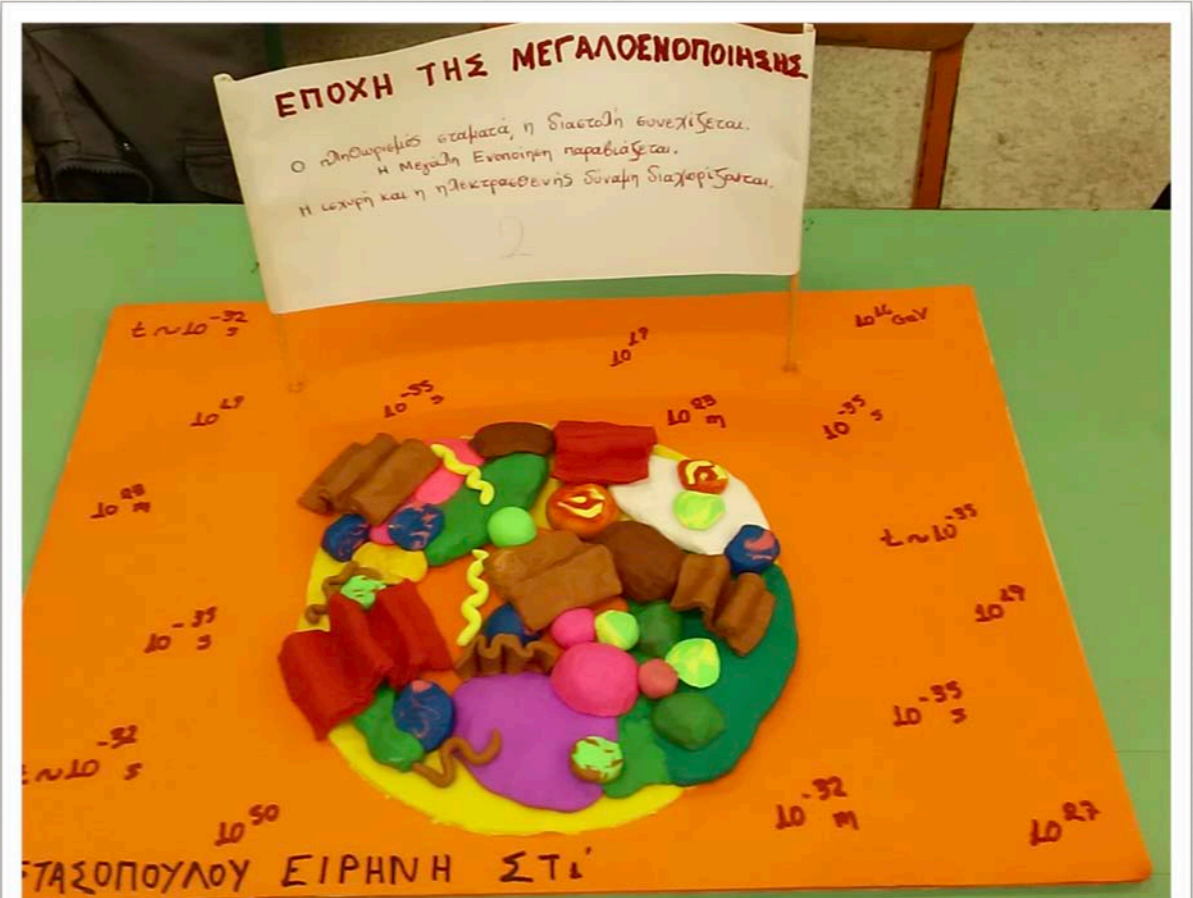 ΕΠΟΧΗ ΤΗΣ ΜΕΓΑΛΟΕΝΟΠΟΙΗΣΗΣ
Ο πληθωρισμός σταματά, η διαστολή συνεχίζεται.
Η Μεγάλη Ενοποίηση παραβιάζεται.
Η ισχυρή και η ηλεκτρασθενής δύναμη διαχωρίζονται.
2
t ~ 10⁻³² s
10¹⁶ GeV
10⁻³⁵ s
10⁻³⁵ s
t ~ 10⁻³⁵
10²⁹
10⁻³⁵ s
10⁻³⁵ s
~ 10⁻³² s
10⁻³² m
10⁵⁰
10²⁷
ΣΤΑΣΟΠΟΥΛΟΥ ΕΙΡΗΝΗ ΣΤ1'